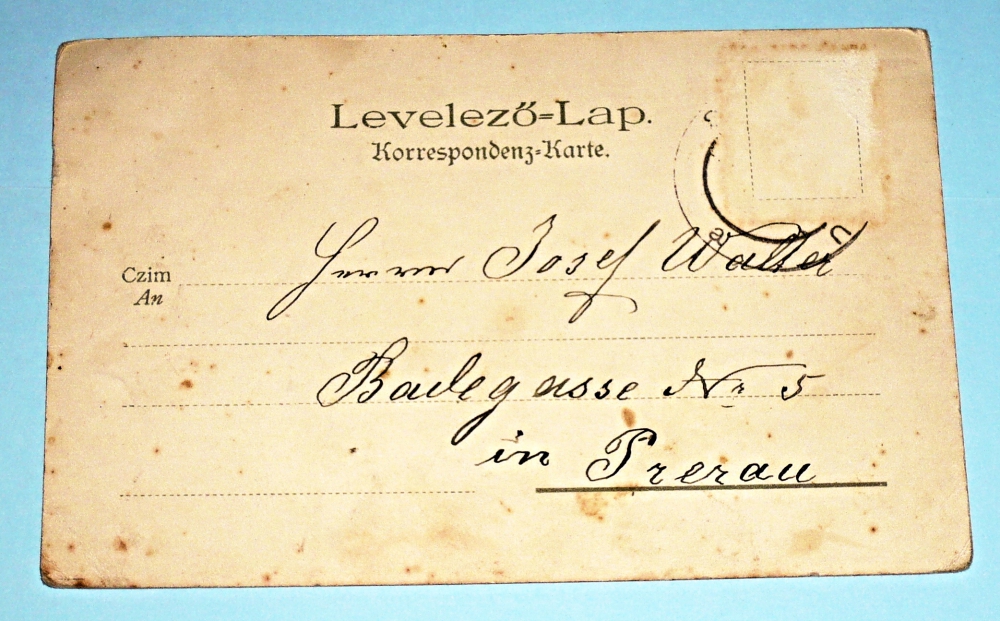 Levelező=Lap.
Korrespondenz=Karte.
Czim
An
Herrn Josef
Badegasse No 5
in Prerau